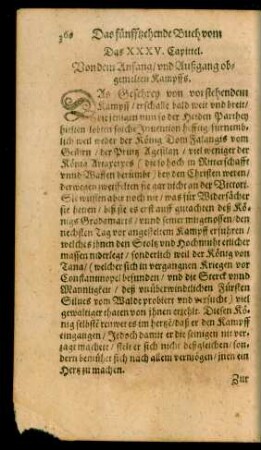 360 Das fünffzehende Buch vom
Das XXXV. Capittel.
Von dem Anfang / und Außgang ob-
gemelten Kampffs.
DAs Geschrey von vorstehendem
Kampff / erschalle bald weit und breit /
diejenigen nun so der Heiden Parthey
hielten
weil weder der König Dom Falanges vom
Gestirn / der Printz Agesilan / viel weniger der
König Artaxerxes ( die so hoch in Ritterschafft
vnd Waffen berümbt ) bey den Christen weren /
derwegen zweiffelten sie gar nicht an der Victori.
Sie wusten aber noch nit / was für Widersächer
sie hetten / biß sie es erst auff gutachten deß Kö-
nigs Brodamants / vnnd seiner mitgenossen / den
nechsten Tag vor angesteltem Kampff erfuhren /
welches jhnen den Stoltz vnd Hochmuht etlicher
massen niderlegt / sonderlich weil der König von
Tana / ( welcher sich in vergangnen Kriegen vor
Constantinopel befunden / vnd die Sterck vnnd
Mannligkeit / deß vnüberwindtlichen Fürsten
Silues vom Walde probiert vnd versucht ) viel
gewaltiger thaten von jhnen erzehlt. Diesen Kö-
nig selbste rewet es im hertzē / daß er den Kampff
eingangen / Jedoch damit er die seinigen nit ver-
zagt machete / stelt er sich nicht deßgleichen / son-
dern bemühet sich nach allem vermögen / jnen ein
Hertz zu machen.
Zur